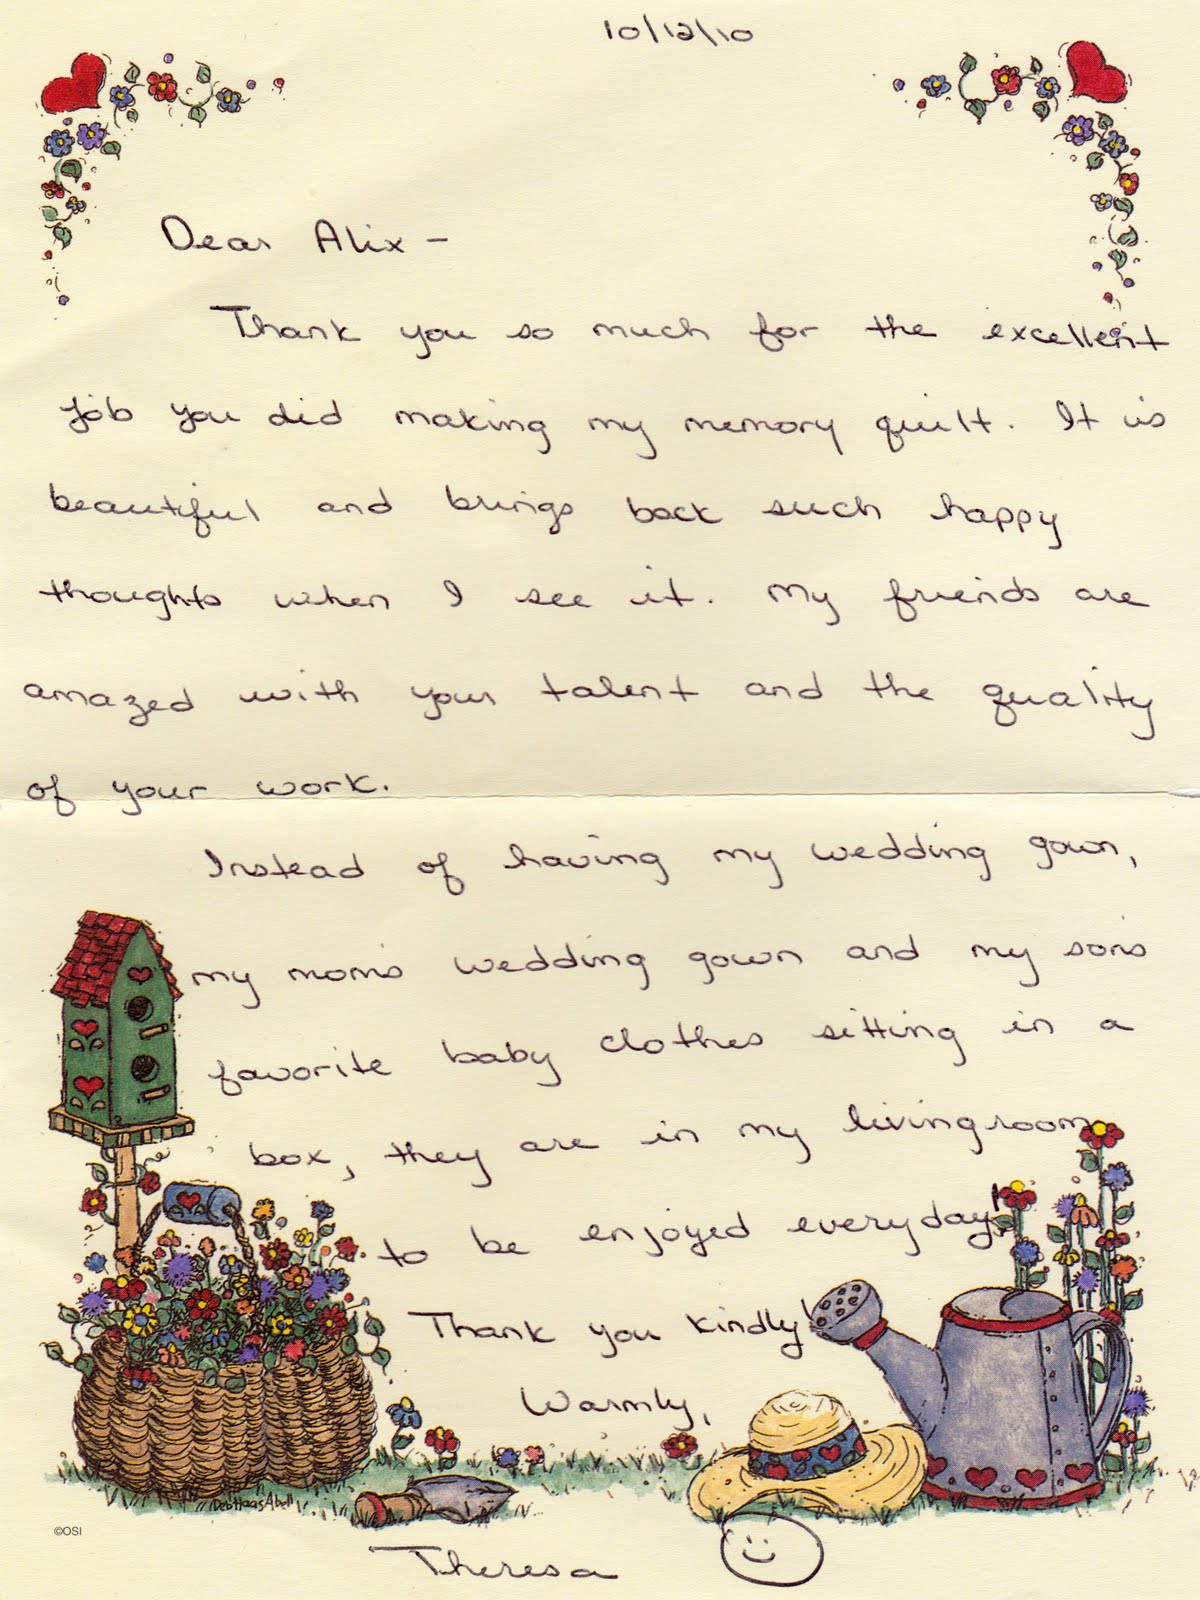 10/12/10
Dear Alix –
Thank you so much for the excellent
job you did making my memory quilt. It is
beautiful and brings back such happy
thoughts when I see it. My friends are
amazed with your talent and the quality
of your work.
Instead of having my wedding gown,
my mom's wedding gown and my son's
favorite baby clothes sitting in a
box, they are in my livingroom
to be enjoyed everyday!
Thank you kindly!
Warmly,
Deb Haas Abell
©OSI
Theresa